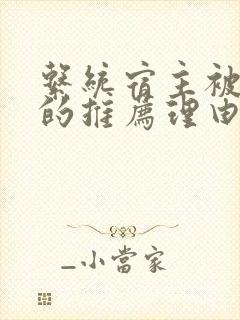 繫統宿主被
的推薦理由
_小當家